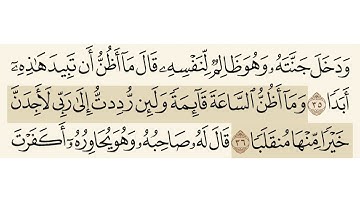 وَدَخَلَ جَنَّتَهُۥ وَهُوَ ظَالِمٌ لِّنَفْسِهِۦ قَالَ مَآ أَظُنُّ أَن تَبِيدَ هَـٰذِهِۦٓ
أَبَدًا ٣٥ وَمَآ أَظُنُّ ٱلسَّاعَةَ قَآئِمَةً وَلَئِن رُّدِدتُّ إِلَىٰ رَبِّى لَأَجِدَنَّ
خَيْرًا مِّنْهَا مُنقَلَبًا ٣٦ قَالَ لَهُۥ صَاحِبُهُۥ وَهُوَ يُحَاوِرُهُۥٓ أَكَفَرْتَ